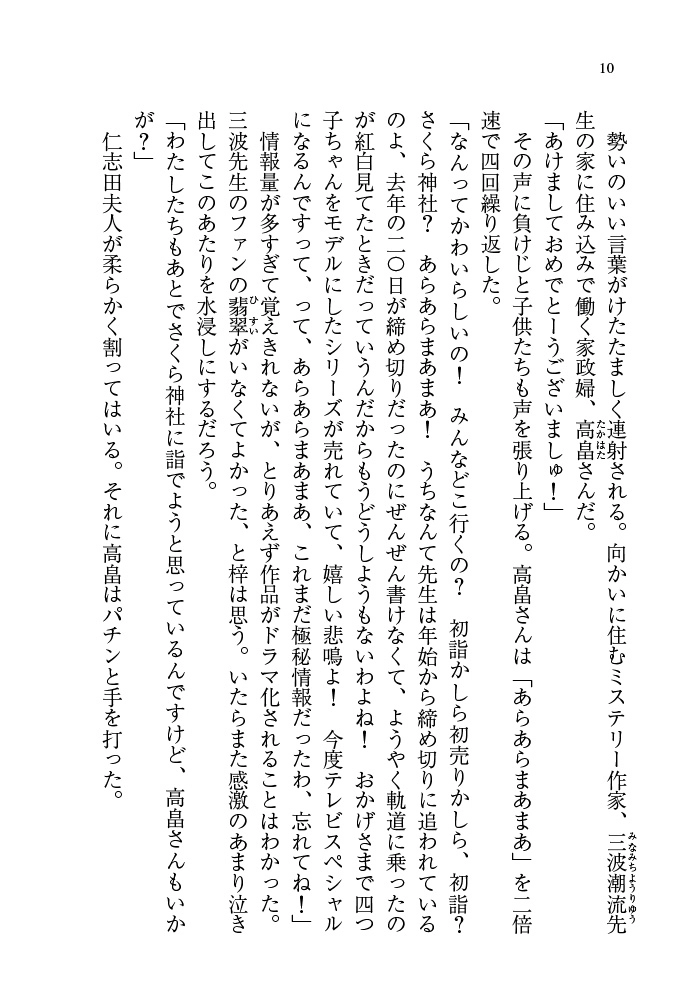 10
勢いのいい言葉がけたたましく連射される。向かいに住むミステリー作家、三波潮流先
みなみちようりゆう
生の家に住み込みで働く家政婦、高畠さんだ。
たかはた
「あけましておめでとーうございましゅ！」
その声に負けじと子供たちも声を張り上げる。高畠さんは「あらあらまあまあ」を二倍
速で四回繰り返した。
「なんってかわいらしいの！　みんなどこ行くの？　初詣かしら初売りかしら、初詣？
さくら神社？　あらあらまあまあ！　うちなんて先生は年始から締め切りに追われている
のよ、去年の二〇日が締め切りだったのにぜんぜん書けなくて、ようやく軌道に乗ったの
が紅白見てたときだっていうんだからもうどうしようもないわよね！　おかげさまで四つ
子ちゃんをモデルにしたシリーズが売れていて、嬉しい悲鳴よ！　今度テレビスペシャル
になるんですって、って、あらあらまあまあ、これまだ極秘情報だったわ、忘れてね！」
情報量が多すぎて覚えきれないが、とりあえず作品がドラマ化されることはわかった。
三波先生のファンの翡翠がいなくてよかった、と梓は思う。いたらまた感激のあまり泣き
ひすい
出してこのあたりを水浸しにするだろう。
「わたしたちもあとでさくら神社に詣でようと思っているんですけど、高畠さんもいか
が？」
仁志田夫人が柔らかく割ってはいる。それに高畠はパチンと手を打った。